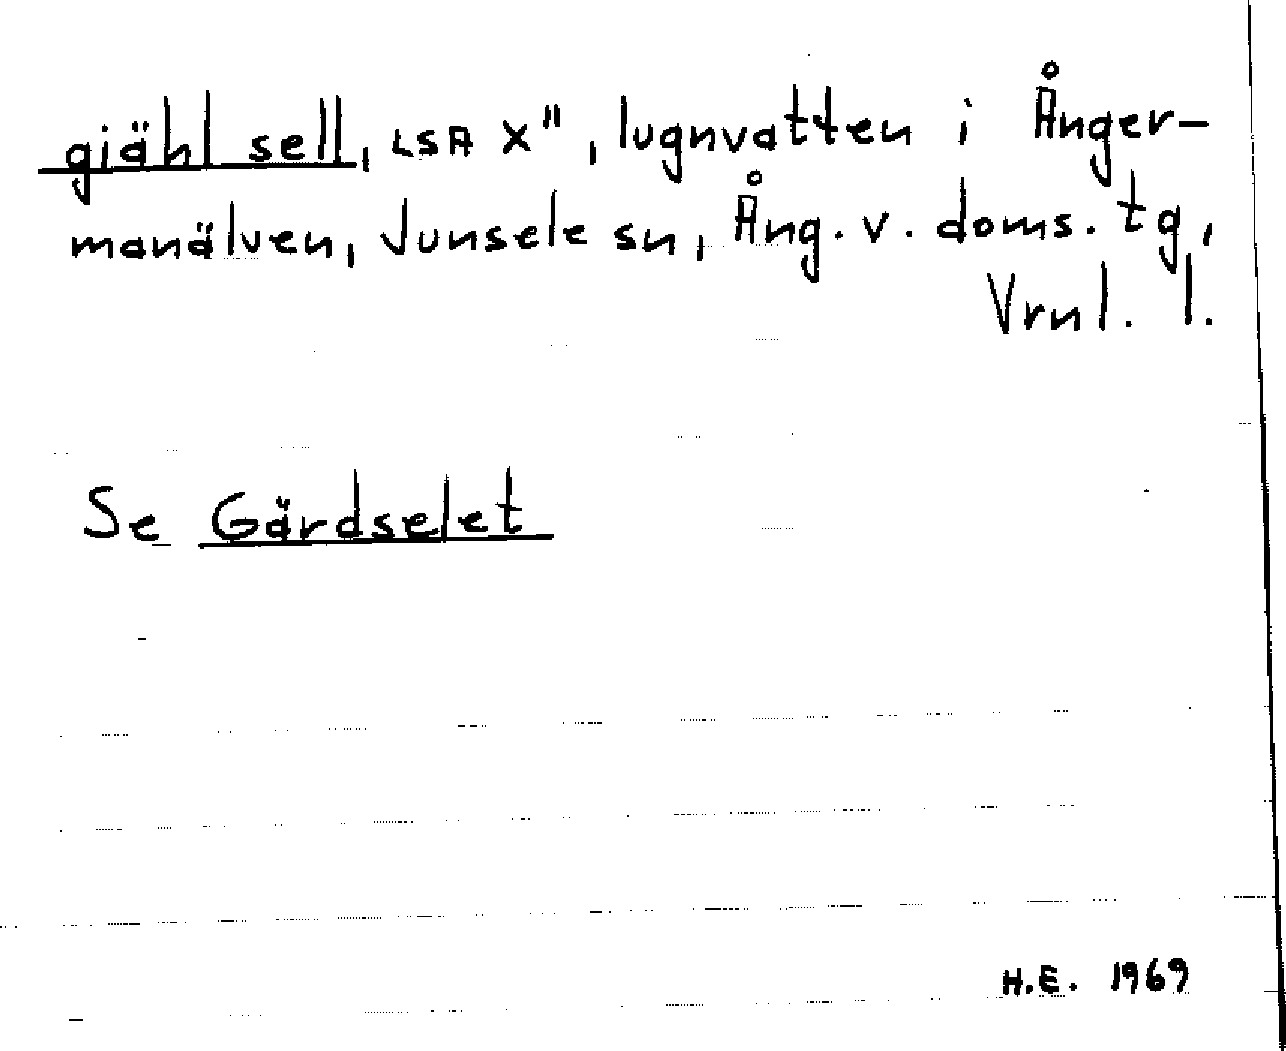 gjähl sell, LSA X", lugnvatten i Ånger-
manälven, Junsele sn, Ång. v. doms. tg,
Vrnl. l.
Se Gärdselet
H.E. 1969